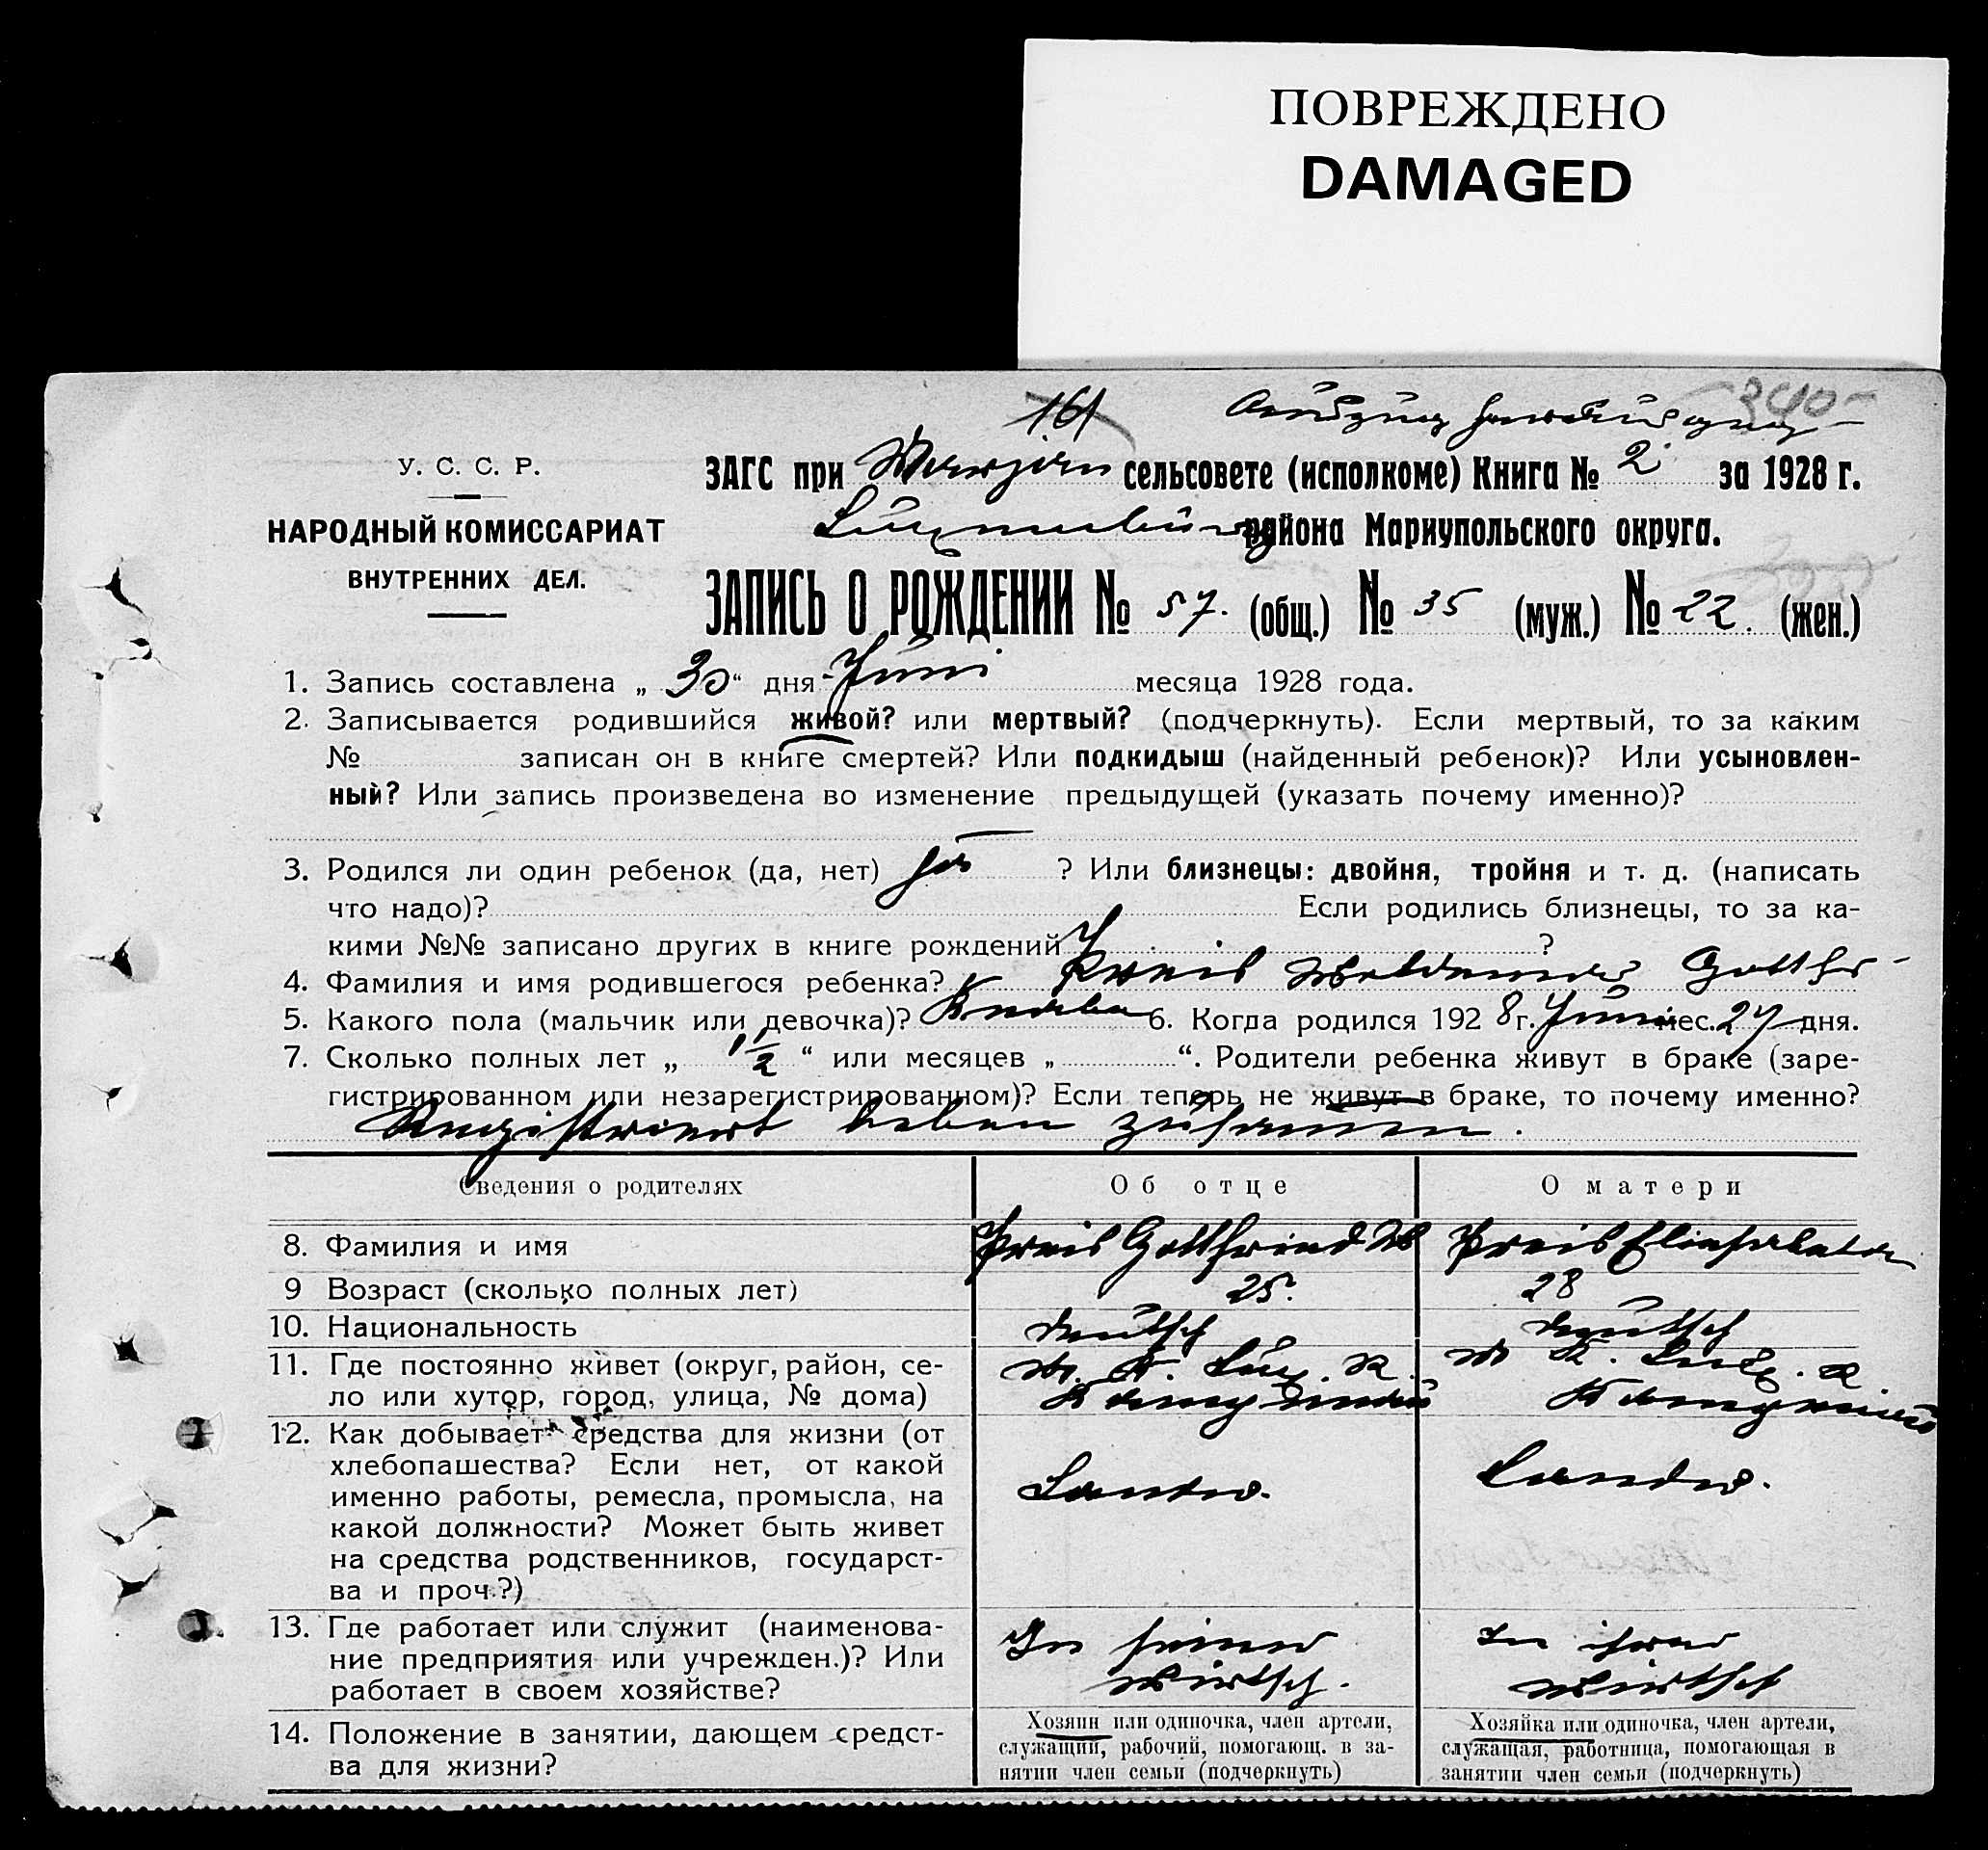 ПОВРЕЖДЕНО
DAMAGED
161
340
У. С. С. Р.
НАРОДНЫЙ КОМИССАРИАТ
ВНУТРЕННИХ ДЕЛ.
ЗАГС при сельсовете (исполкоме) Книга № 2 за 1928 г.
района Мариупольского округа.
ЗАПИСЬ О РОЖДЕНИИ № 57. (общ.) № 35 (муж.) № 22. (жен.)
1. Запись составлена „ 30 “ дня Juni месяца 1928 года.
2. Записывается родившийся живой? или мертвый? (подчеркнуть). Если мертвый, то за каким
№ записан он в книге смертей? Или подкидыш (найденный ребенок)? Или усыновлен-
ный? Или запись произведена во изменение предыдущей (указать почему именно)?
3. Родился ли один ребенок (да, нет) ja ? Или близнецы: двойня, тройня и т. д. (написать
что надо)? Если родились близнецы, то за ка-
кими №№ записано других в книге рождений ?
4. Фамилия и имя родившегося ребенка? Preis Woldemar Gottfr-
5. Какого пола (мальчик или девочка)? Knabe 6. Когда родился 192 8 г. Juni мес. 27 дня.
7. Сколько полных лет „ 1 1/2 “ или месяцев „ “. Родители ребенка живут в браке (заре-
гистрированном или незарегистрированном)? Если теперь не живут в браке, то почему именно?
Registriert leben zusamen.
Сведения о родителях Об отце О матери
8. Фамилия и имя Preis Gottfried W Preis Eliesabeta
9 Возраст (сколько полных лет) 25. 28
10. Национальность deutsch deutsch
11. Где постоянно живет (округ, район, се- M. K. Lux. R. M K. Lux. R
ло или хутор, город, улица, № дома)
12. Как добывает средства для жизни (от
хлебопашества? Если нет, от какой
именно работы, ремесла, промысла, на Landw. Landw.
какой должности? Может быть живет
на средства родственников, государст-
ва и проч.?)
13. Где работает или служит (наименова- In seiner In ihrer
ние предприятия или учрежден.)? Или Wirtsch. Wirtsch
работает в своем хозяйстве?
14. Положение в занятии, дающем средст-
ва для жизни?
Хозяин или одиночка, член артели,
служащий, рабочий, помогающ. в за-
нятии член семьи (подчеркнуть)
Хозяйка или одиночка, член артели,
служащая, работница, помогающая в
занятии член семьи (подчеркнуть)